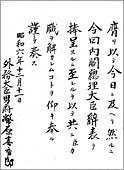 膺リ以テ今日ニ及ヘリ然ルニ
今回内閣總理大臣辭表ヲ
捧呈スルニ至レルヲ以テ共ニ臣カ
職ヲ解カレムコトヲ仰キ奉ル
謹テ奏ス
昭和六年十二月十一日
外務大臣男爵幣原喜重郎